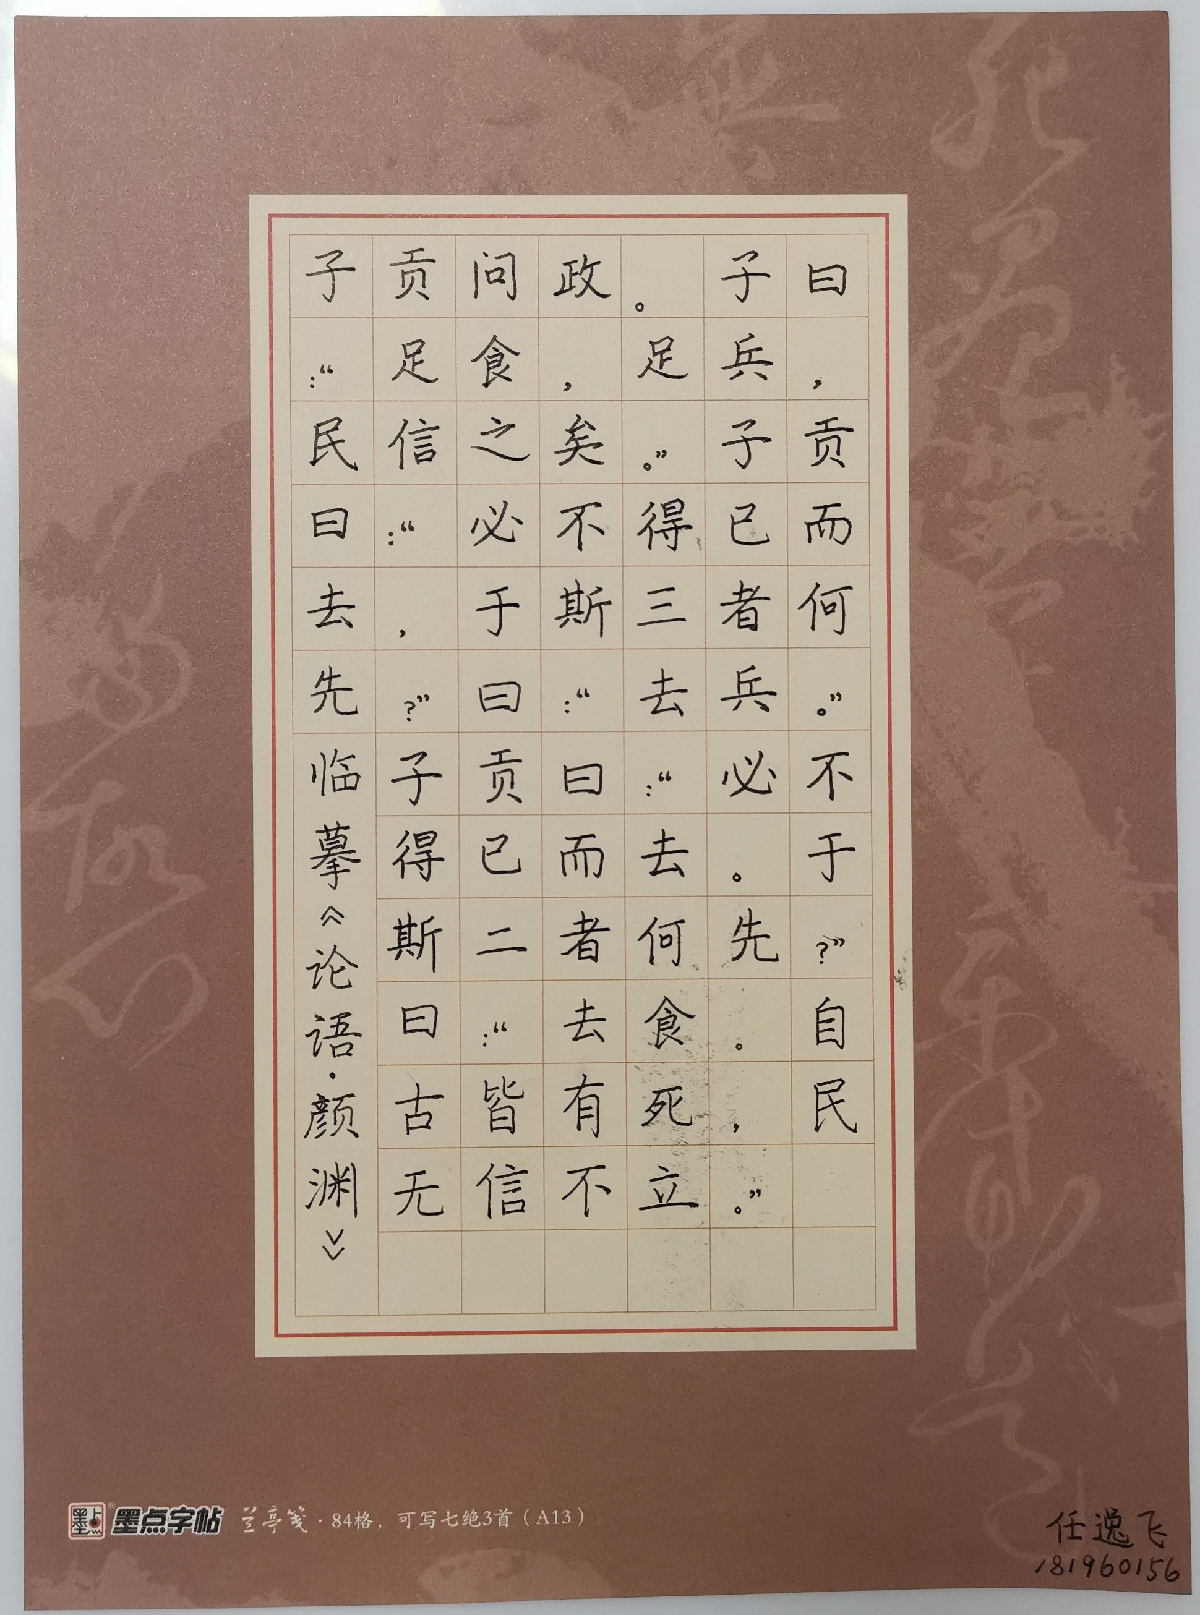 子贡问政。子曰
：“足食，足兵，
民信之矣。”子贡
曰：“必不得已而
去，于斯三者何
先？”曰：“去兵。”
子贡曰：“必不
得已而去。于
斯二者何先？”
曰：“去食。自
古皆有死，民
无信不立。”
临摹《论语·颜渊》
墨点字帖 兰亭笺·84格，可写七绝3首（A13）
任逸飞
181960156